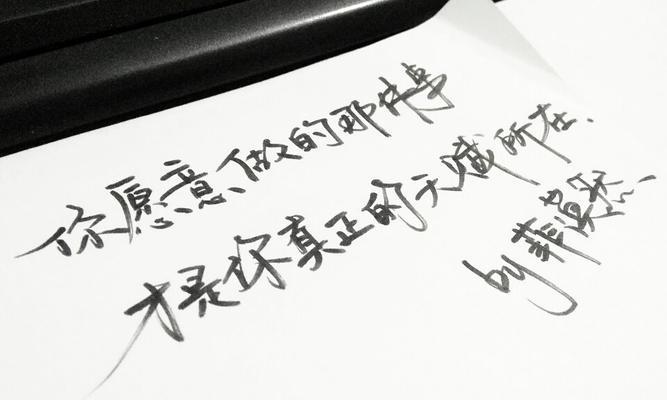 你愿意做的那件事
才是你真正的天赋所在.
by 菲莫愁